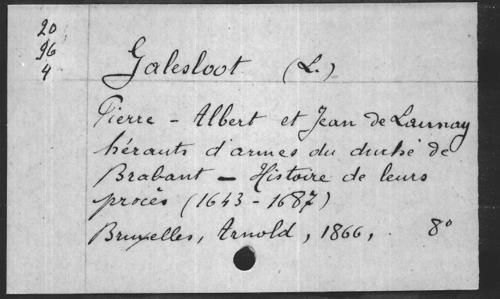 20
96
4
Galesloot (L.)
Pierre - Albert et Jean de Launay
hérauts d'armes du duché de
Brabant - Histoire de leurs
procès (1643 - 1687)
Bruxelles, Arnold, 1866, 8°